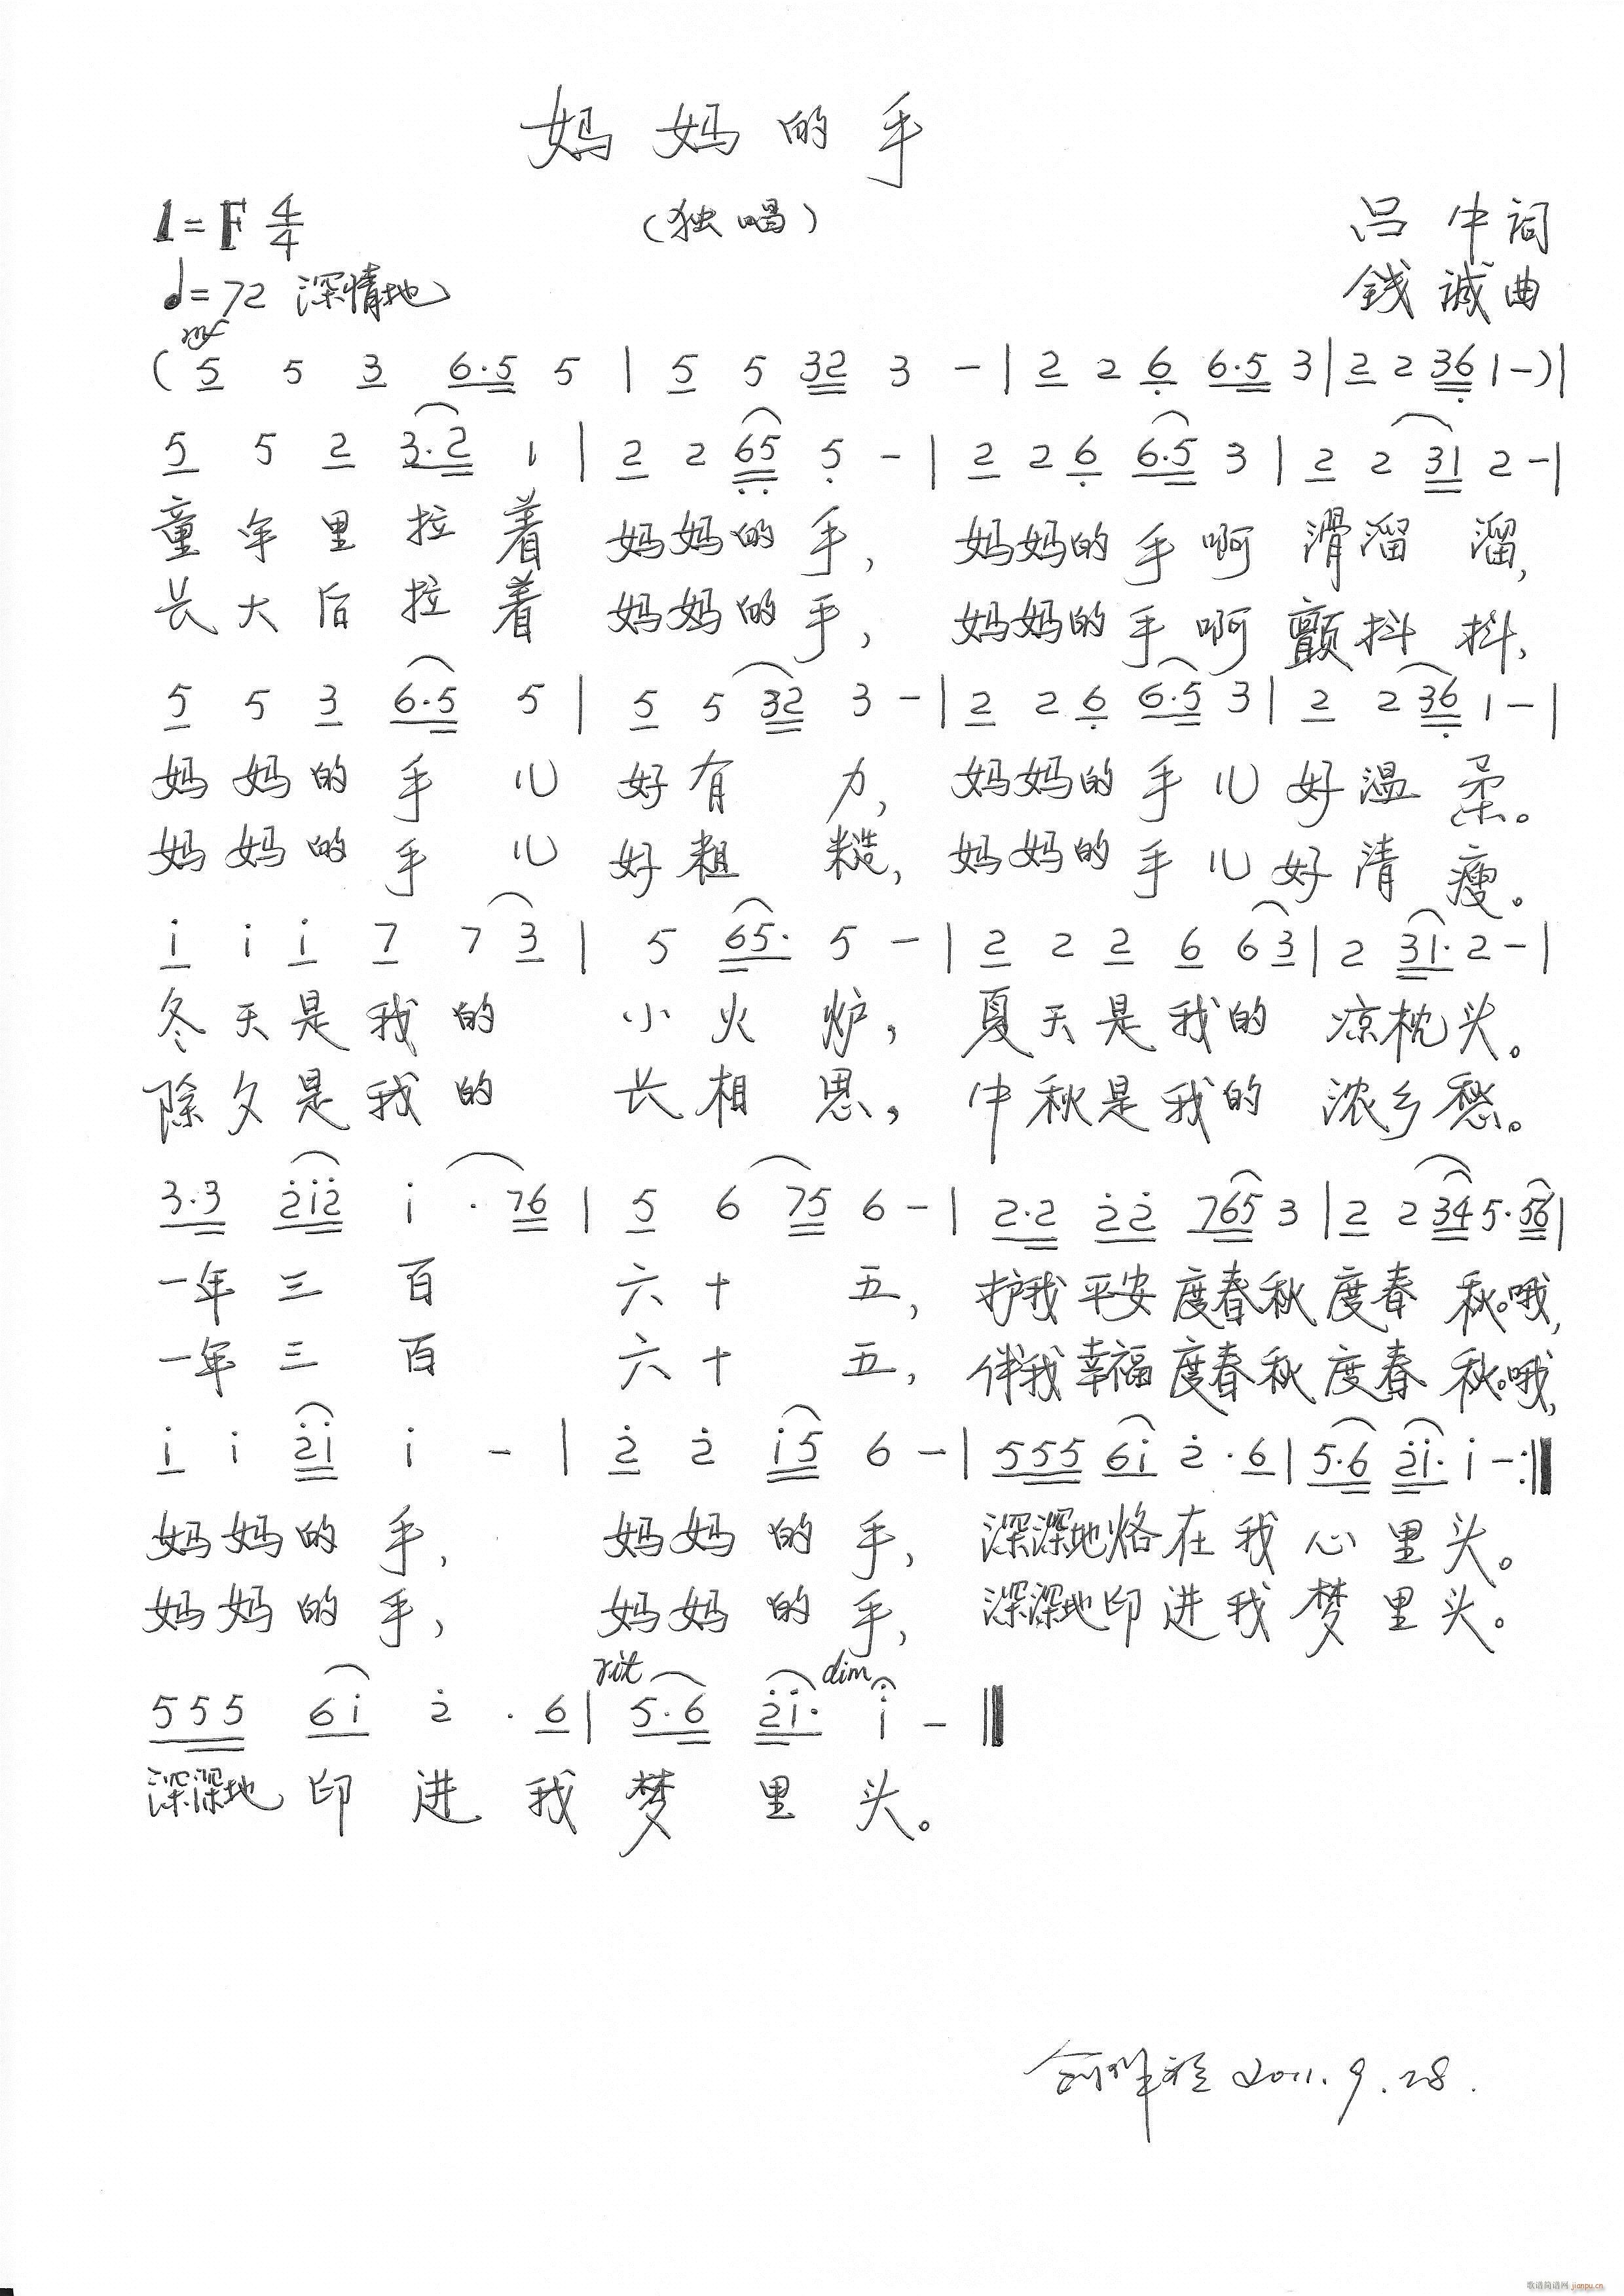 妈妈的手
1=F 4/4 （独唱） 吕中词
♩=72 深情地 钱诚曲
mf
( 5 5 3 6·5 5 | 5 5 32 3 - | 2 2 6 6·5 3 | 2 2 36 1 - ) |
5 5 2 3·2 1 | 2 2 65 5 - | 2 2 6 6·5 3 | 2 2 31 2 - |
童年里拉着 妈妈的手， 妈妈的手啊 滑溜溜，
长大后拉着 妈妈的手， 妈妈的手啊 颤抖抖、
5 5 3 6·5 5 | 5 5 32 3 - | 2 2 6 6·5 3 | 2 2 36 1 - |
妈妈的手儿 好有力， 妈妈的手儿好温柔。
妈妈的手儿 好粗糙， 妈妈的手儿好清瘦。
i i i 7 7 3 | 5 65· 5 - | 2 2 2 6 6 3 | 2 31· 2 - |
冬天是我的 小火炉， 夏天是我的 凉枕头。
除夕是我的 长相思， 中秋是我的 浓乡愁。
3·3 2̇i2̇ i · 76 | 5 6 75 6 - | 2·2 2̇2̇ 765 3 | 2 2 34 5·56 |
一年三百 六十五， 护我平安度春秋度春秋。哦，
一年三百 六十五， 伴我幸福度春秋度春秋。哦，
i i 2̇i i - | 2̇ 2̇ i5 6 - | 555 6i 2̇·6 | 5·6 2̇i· i - :||
妈妈的手， 妈妈的手， 深深地烙在我心里头。
妈妈的手， 妈妈的手， 深深地印进我梦里头。
rit dim
555 6i 2̇ · 6 | 5·6 2̇i· i - ||
深深地印进我梦里头。
2011.9.28.
歌谱简谱网 jianpu.cn